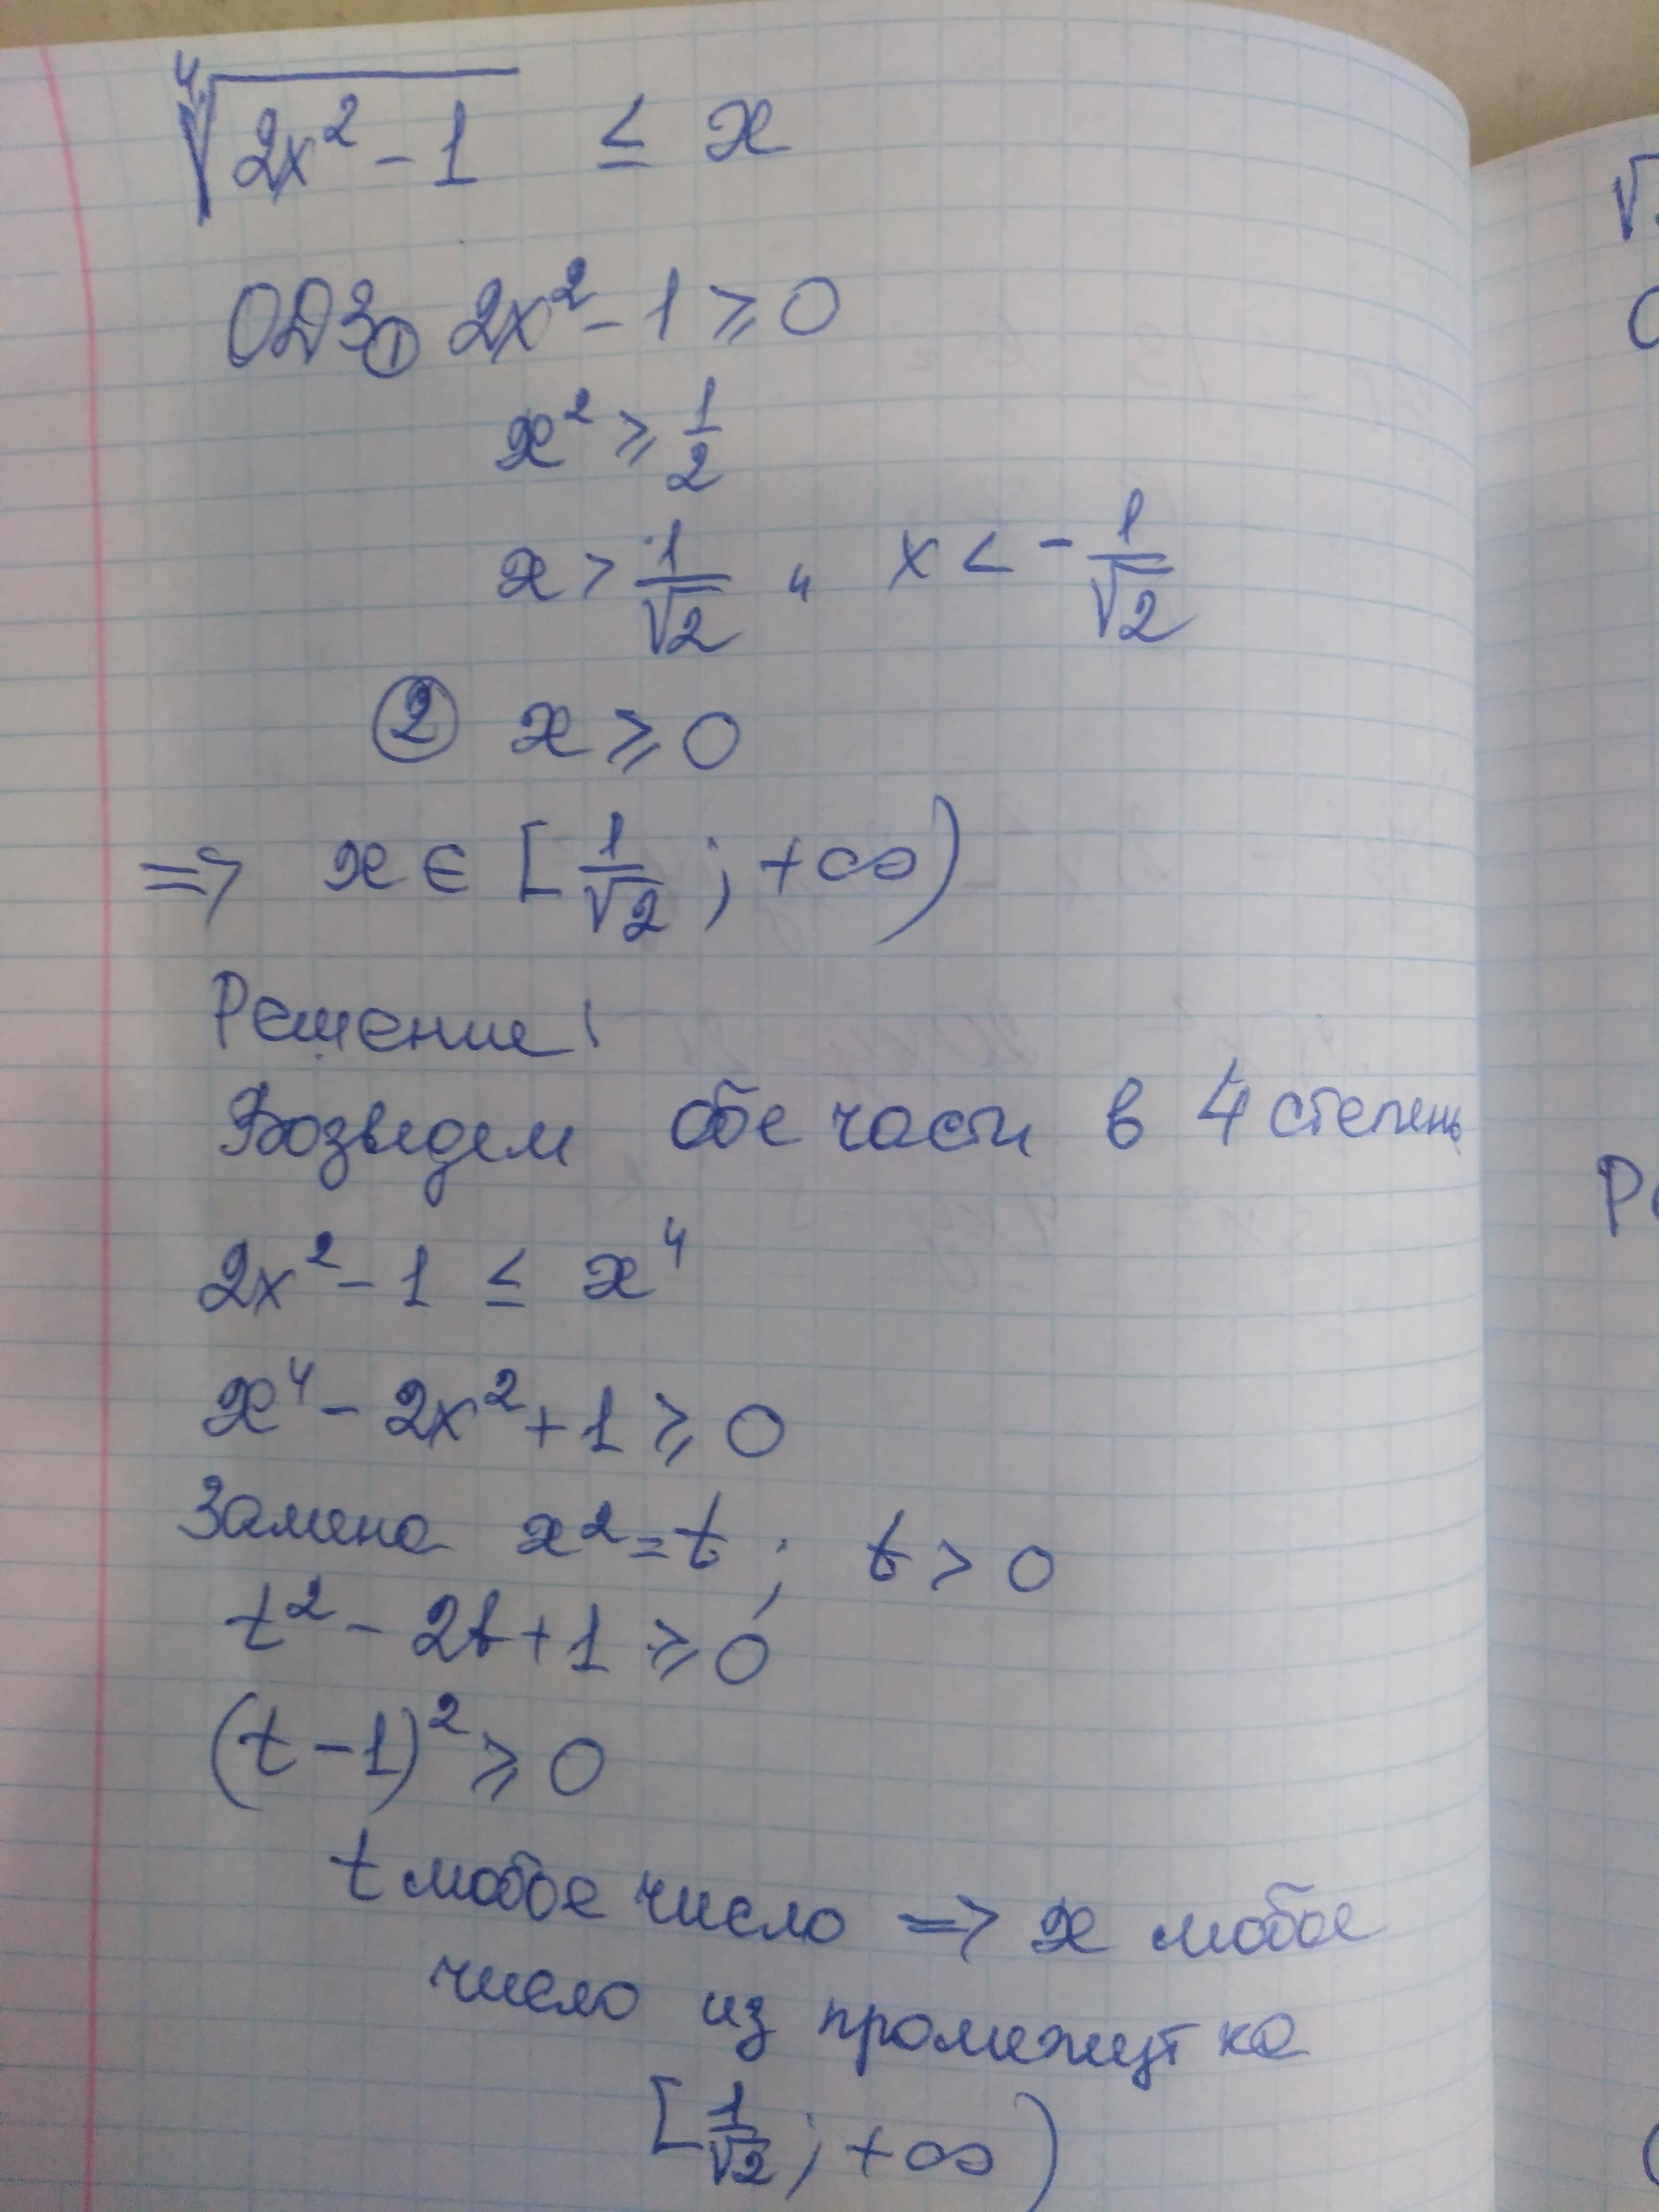 ⁴√(2x² - 1) ≤ x
ОДЗ ① 2x² - 1 ≥ 0
x² ≥ 1/2
x > 1/√2 и x < - 1/√2
② x ≥ 0
=> x ∈ [1/√2 ; +∞)
Решение:
Возведем обе части в 4 степень
2x² - 1 ≤ x⁴
x⁴ - 2x² + 1 ≥ 0
Замена x² = t ; t > 0
t² - 2t + 1 ≥ 0
(t - 1)² ≥ 0
t любое число => x любое
число из промежутка
[1/√2 ; +∞)